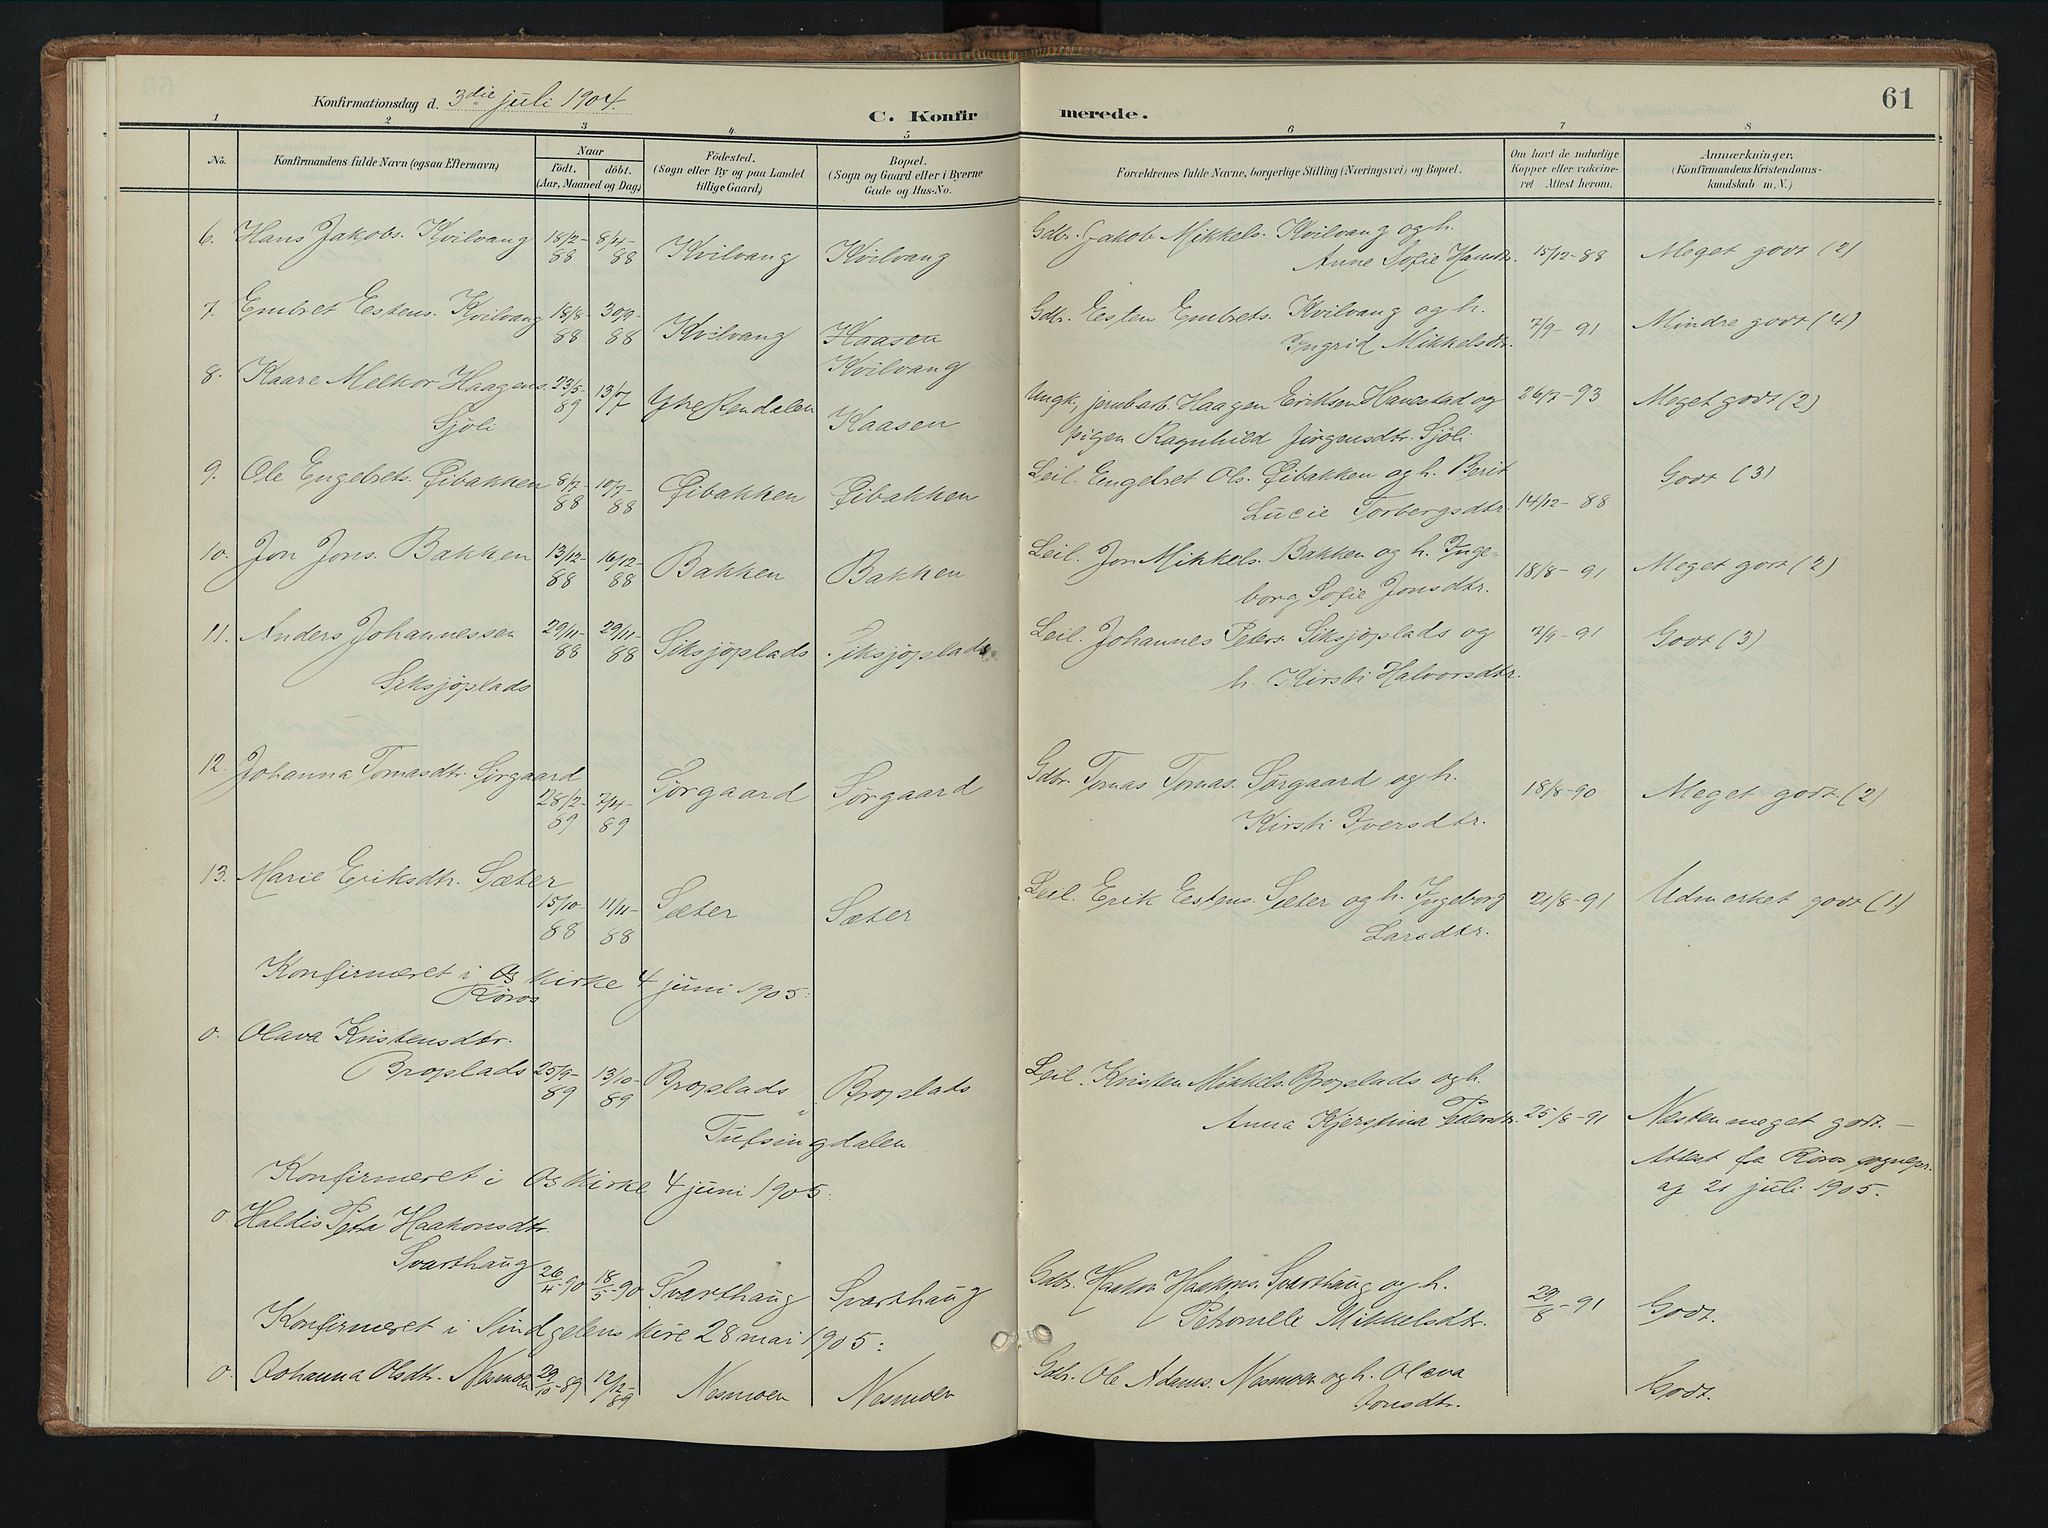 Konfirmationsdag d. 3die juli 1904.
C. Konfirmerede.
61
1 2 3 4 5 6 7 8
No. Konfirmandens fulde Navn (ogsaa Efternavn) Naar Födt. döbt. (Aar, Maaned og Dag) Födested. (Sogn eller By og paa Landet tillige Gaard) Bopæl. (Sogn og Gaard eller i Byerne Gade og Hus-No. Forældrenes fulde Navne, borgerlige Stilling (Næringsvei) og Bopæl. Om havt de naturlige Kopper eller vakcineret Attest herom. Anmærkninger. (Konfirmandens Kristendomskundskab m. V.)
6. Hans Jakobs. Kvilvang 18/2-88 8/4-88 Kvilvang Kvilvang Gdbr. Jakob Mikkels. Kvilvang og h.
Anne Sofie Hansdtr. 15/12-88 Meget godt (2)
7. Embret Estens. Kvilvang 18/8-88 30/9-88 Kvilvang Kaasen Gdbr. Esten Embrets. Kvilvang og h.
Kvilvang Ingrid Mikkelsdtr. 7/9-91 Mindre godt (4)
8. Kaare Melkor Haagens. 23/5-89 13/7 Kaasen Ungk, jernbarb. Haagen Eriksen Hanestad og 26/7-93 Meget godt (2)
Sjöli pigen Ragnhild Jørgensdtr. Sjöli
9. Ole Engebrets. Øibakken 8/7-88 10/7-88 Øibakken Øibakken Leil. Engebret Ols. Øibakken og h. Berit
Lucie Torbergsdtr. 14/12-88 Godt (3)
10. Jon Jons. Bakken 13/12-88 16/12-88 Bakken Bakken Leil. Jon Mikkels. Bakken og h. Inge-
borg Sofie Jonsdtr. 18/8-91 Meget godt (2)
11. Anders Johannessen 29/11-88 29/11-88 Siksjøplads Siksjøplads Leil. Johannes Peters. Siksjøplads og 7/9-91 Godt (3)
Siksjøplads h. Kirsti Halvorsdtr.
12. Johanna Tomasdtr. Sørgaard 28/2-89 7/4-89 Sørgaard Sørgaard Gdbr. Tomas Tomas. Sørgaard og h.
Kirsti Iversdtr. 18/8-90 Meget godt. (2)
13. Marie Eriksdtr. Sæter 15/10-88 11/11-88 Sæter Sæter Leil. Erik Estens. Sæter og h. Ingeborg
Larsdtr. 21/8-91 Udmerket godt (1)
Konfirmeret i Os kirke 4 juni 1905:
Røros
0. Olava Kristensdtr.
Broplads 25/9-89 13/10-89 Broplads Broplads Leil. Kristen Mikkels. Broplads og h.
Tufsingdalen Anna Kjerstina Pedersdtr. 25/8-91 Nesten meget godt. -
Attest fra Røros sognepr.
af 21 juli 1905.
Konfirmeret i Os kirke 4 juni 1905:
0. Haldis Petra Haakonsdtr.
Svarthaug 26/4-90 18/5-90 Svarthaug Svarthaug Gdbr. Haakon Haakons. Svarthaug og h.
Petronille Mikkelsdtr. 29/8-91 Godt.
Konfirmeret i Vindgelens kirke 28 mai 1905:
0. Johanna Olsdtr. Nesmoen 29/10-89 12/12-89 Nesmoen Nesmoen Gdbr. Ole Adams. Nesmoen og h. Olava
Jonsdtr. Godt.